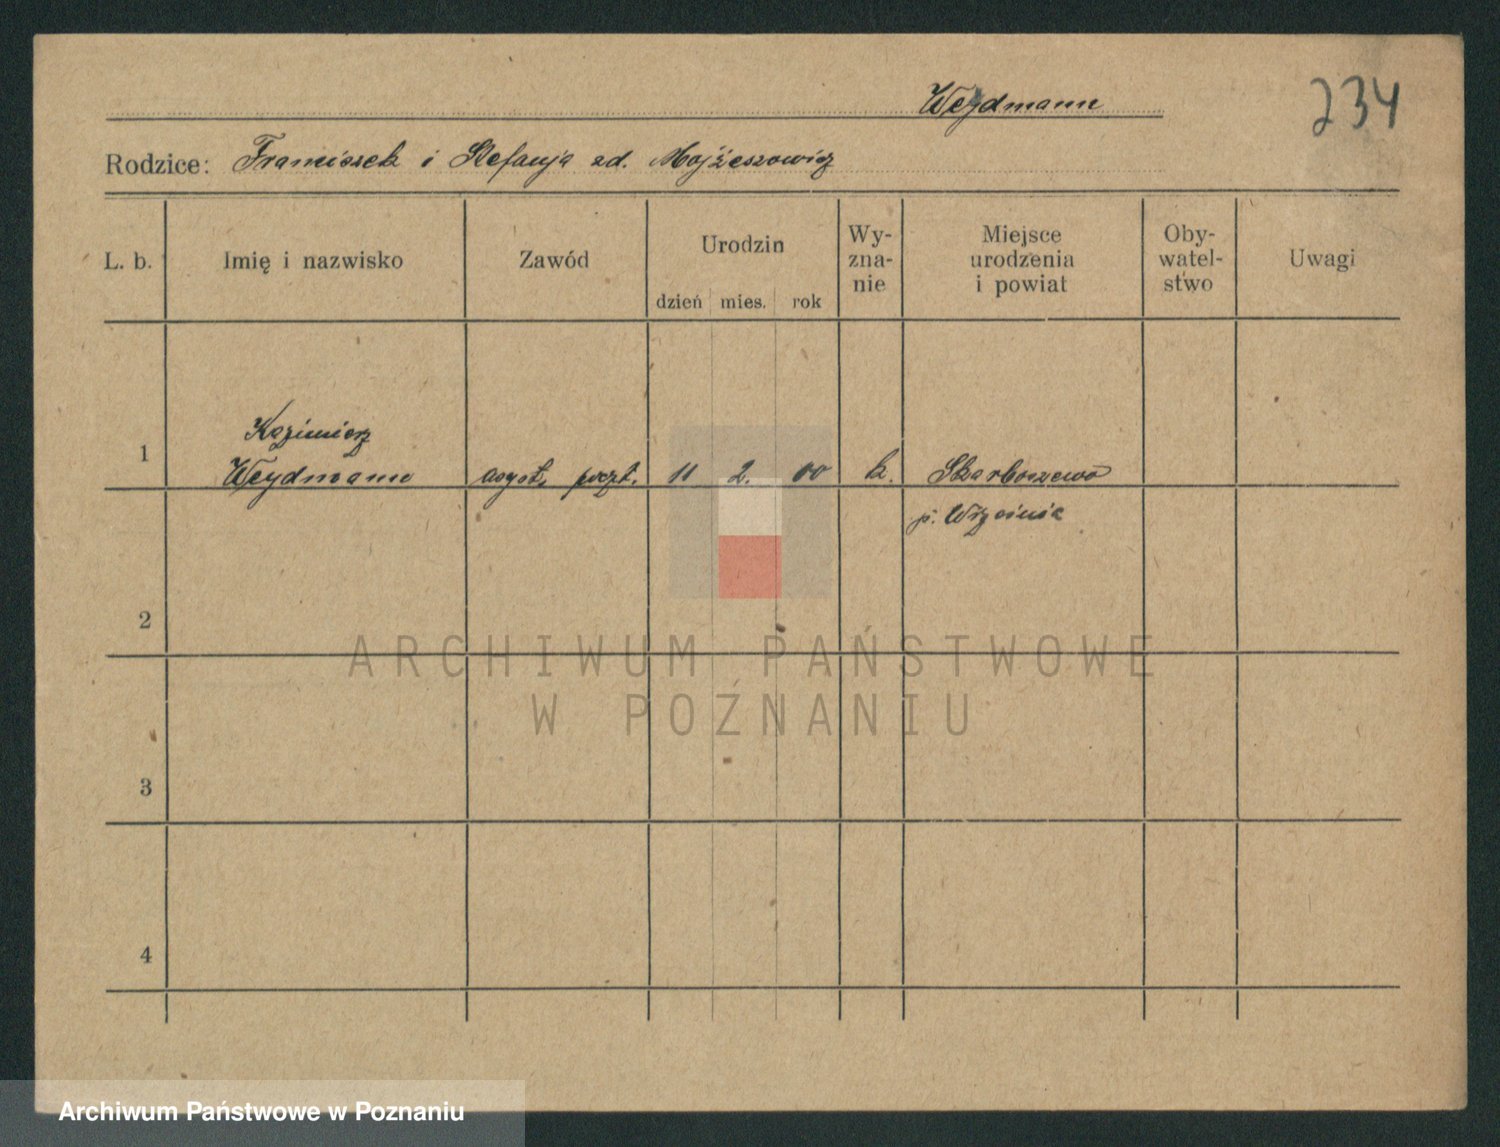 Weydmann
234
Rodzice: Franciszek i Stefanja zd. Mojżeszowicz
L. b. Imię i nazwisko Zawód Urodzin Wy-zna-nie Miejsce urodzenia i powiat Oby-watel-stwo Uwagi
dzień mies. rok
Kazimierz
1 Weydmann asyst. poczt. 11 2. 00 k. Skarboszewo
p. Września
2
ARCHIWUM PAŃSTWOWE
W POZNANIU
3
4
Archiwum Państwowe w Poznaniu